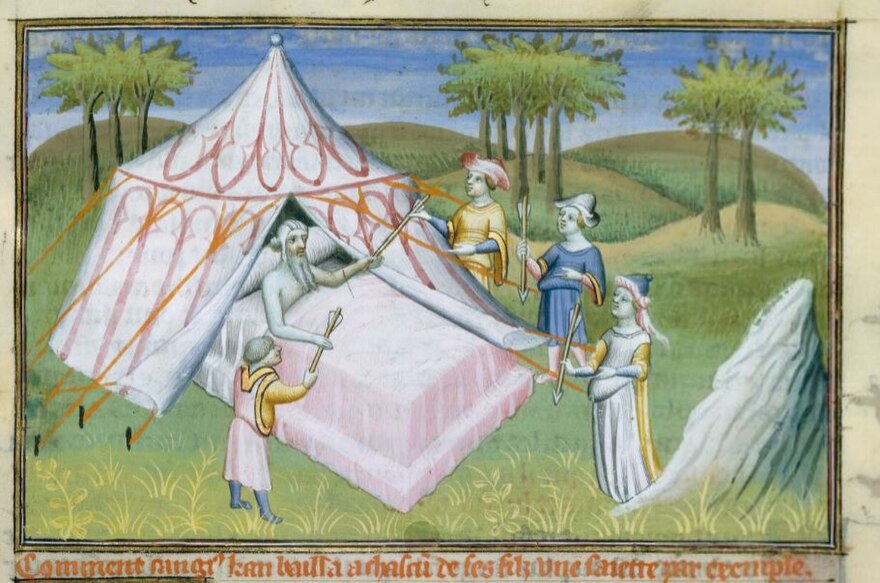 Comment cangⁱ kan bailla a chascũ de ses filz vne saiette par exemple.